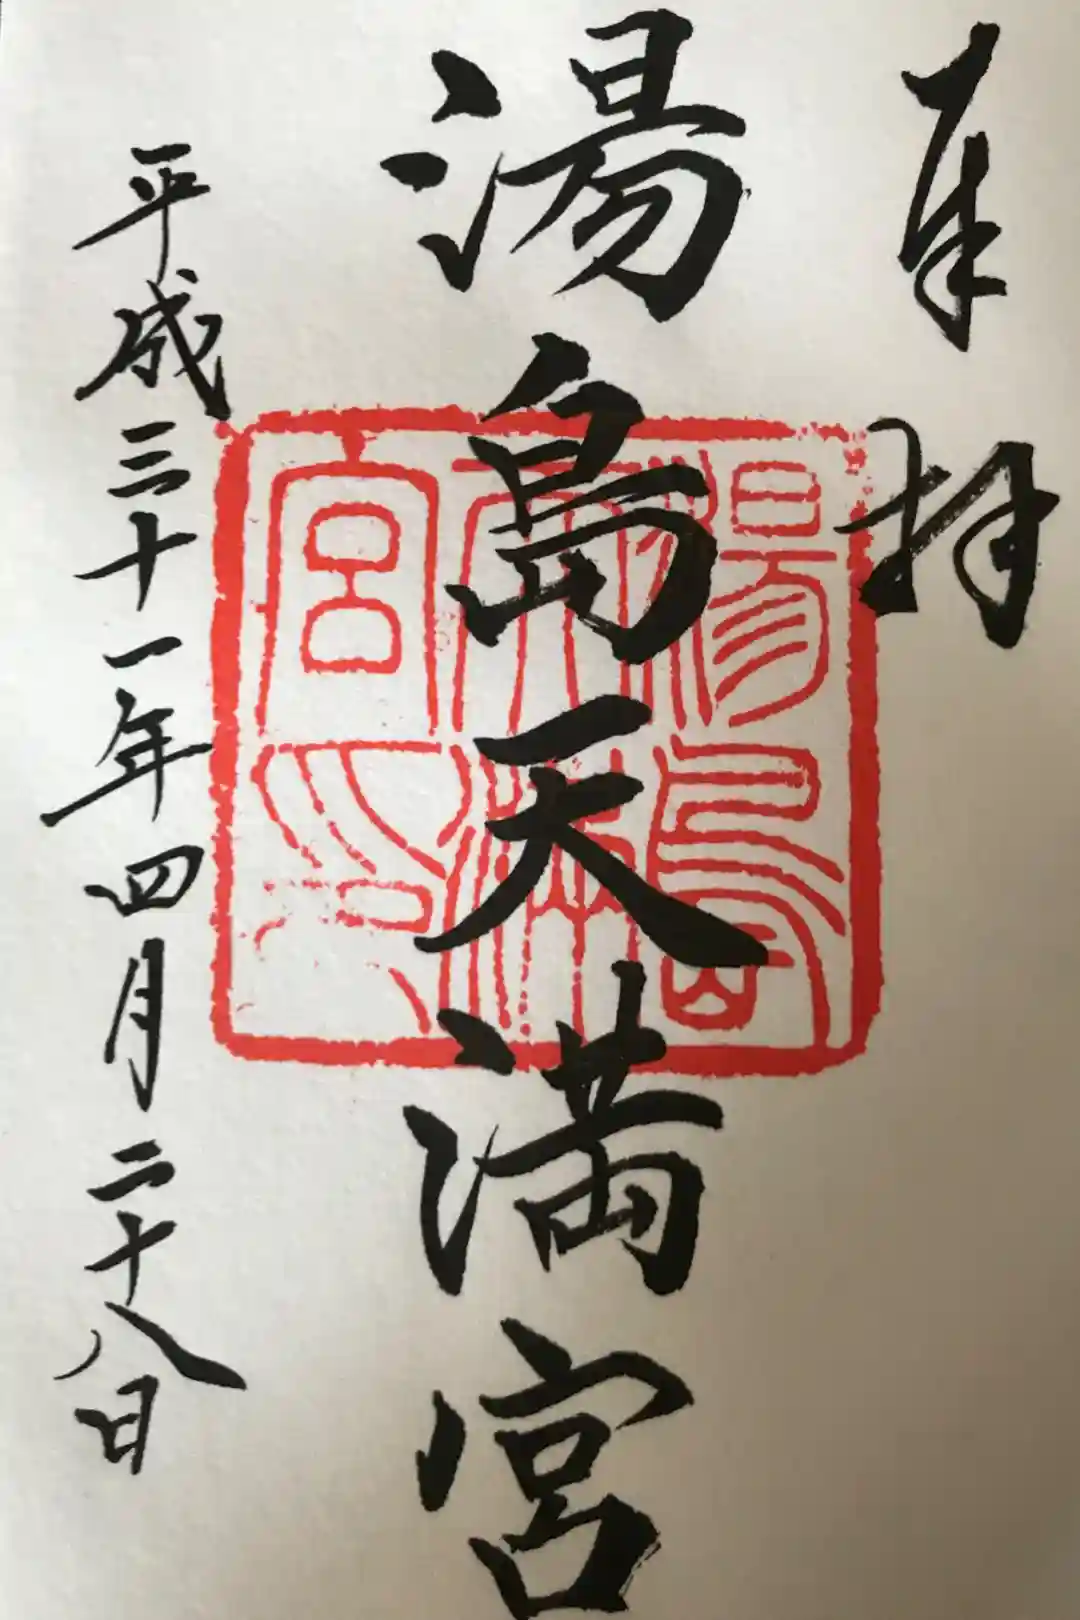 奉拝
湯島天満宮
平成三十一年四月二十八日
湯島
天満
宮印